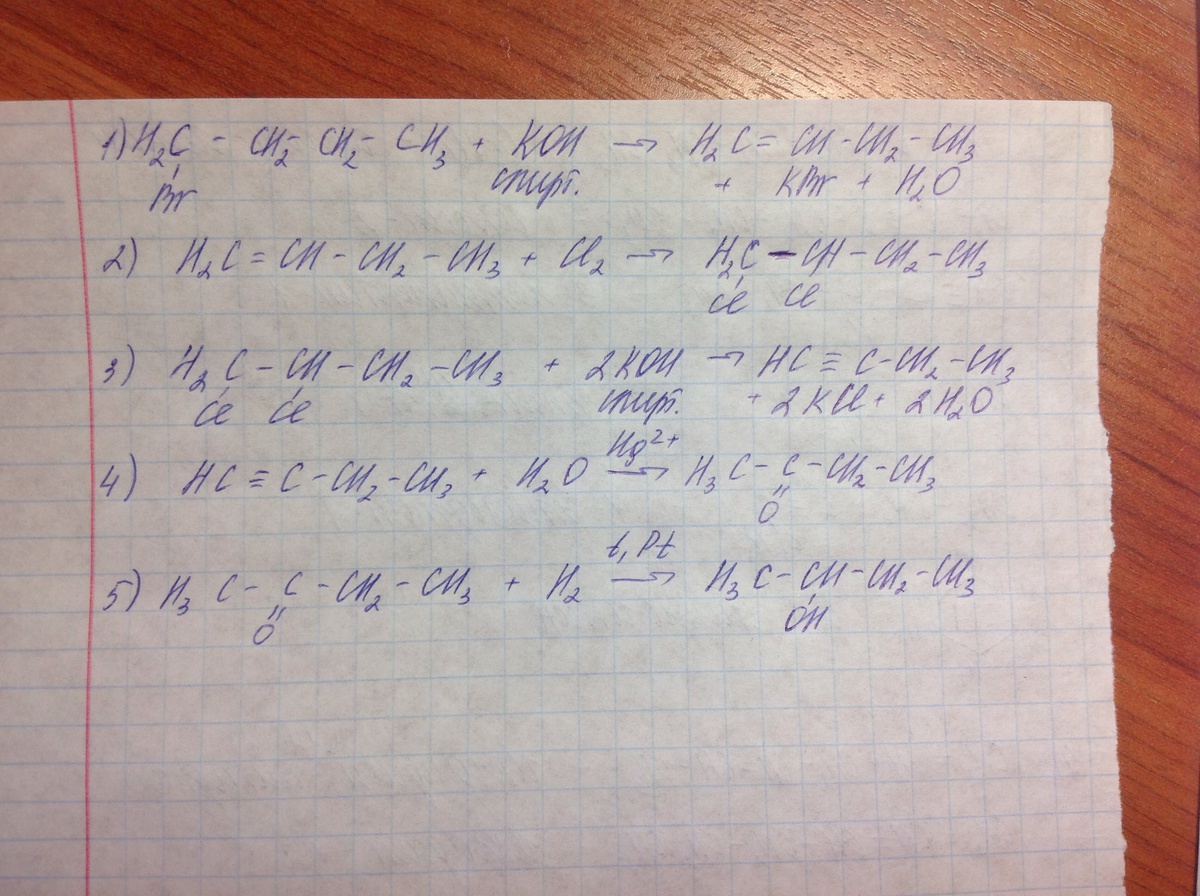 1) H₂C - CH₂ - CH₂ - CH₃ + KOH → H₂C = CH - CH₂ - CH₃
Br спирт. + KBr + H₂O
2) H₂C = CH - CH₂ - CH₃ + Cl₂ → H₂C - CH - CH₂ - CH₃
Cl Cl
3) H₂C - CH - CH₂ - CH₃ + 2KOH → HC ≡ C - CH₂ - CH₃
Cl Cl спирт. + 2KCl + 2H₂O
Hg²⁺
4) HC ≡ C - CH₂ - CH₃ + H₂O → H₃C - C - CH₂ - CH₃
O
t, Pt
5) H₃C - C - CH₂ - CH₃ + H₂ → H₃C - CH - CH₂ - CH₃
O OH